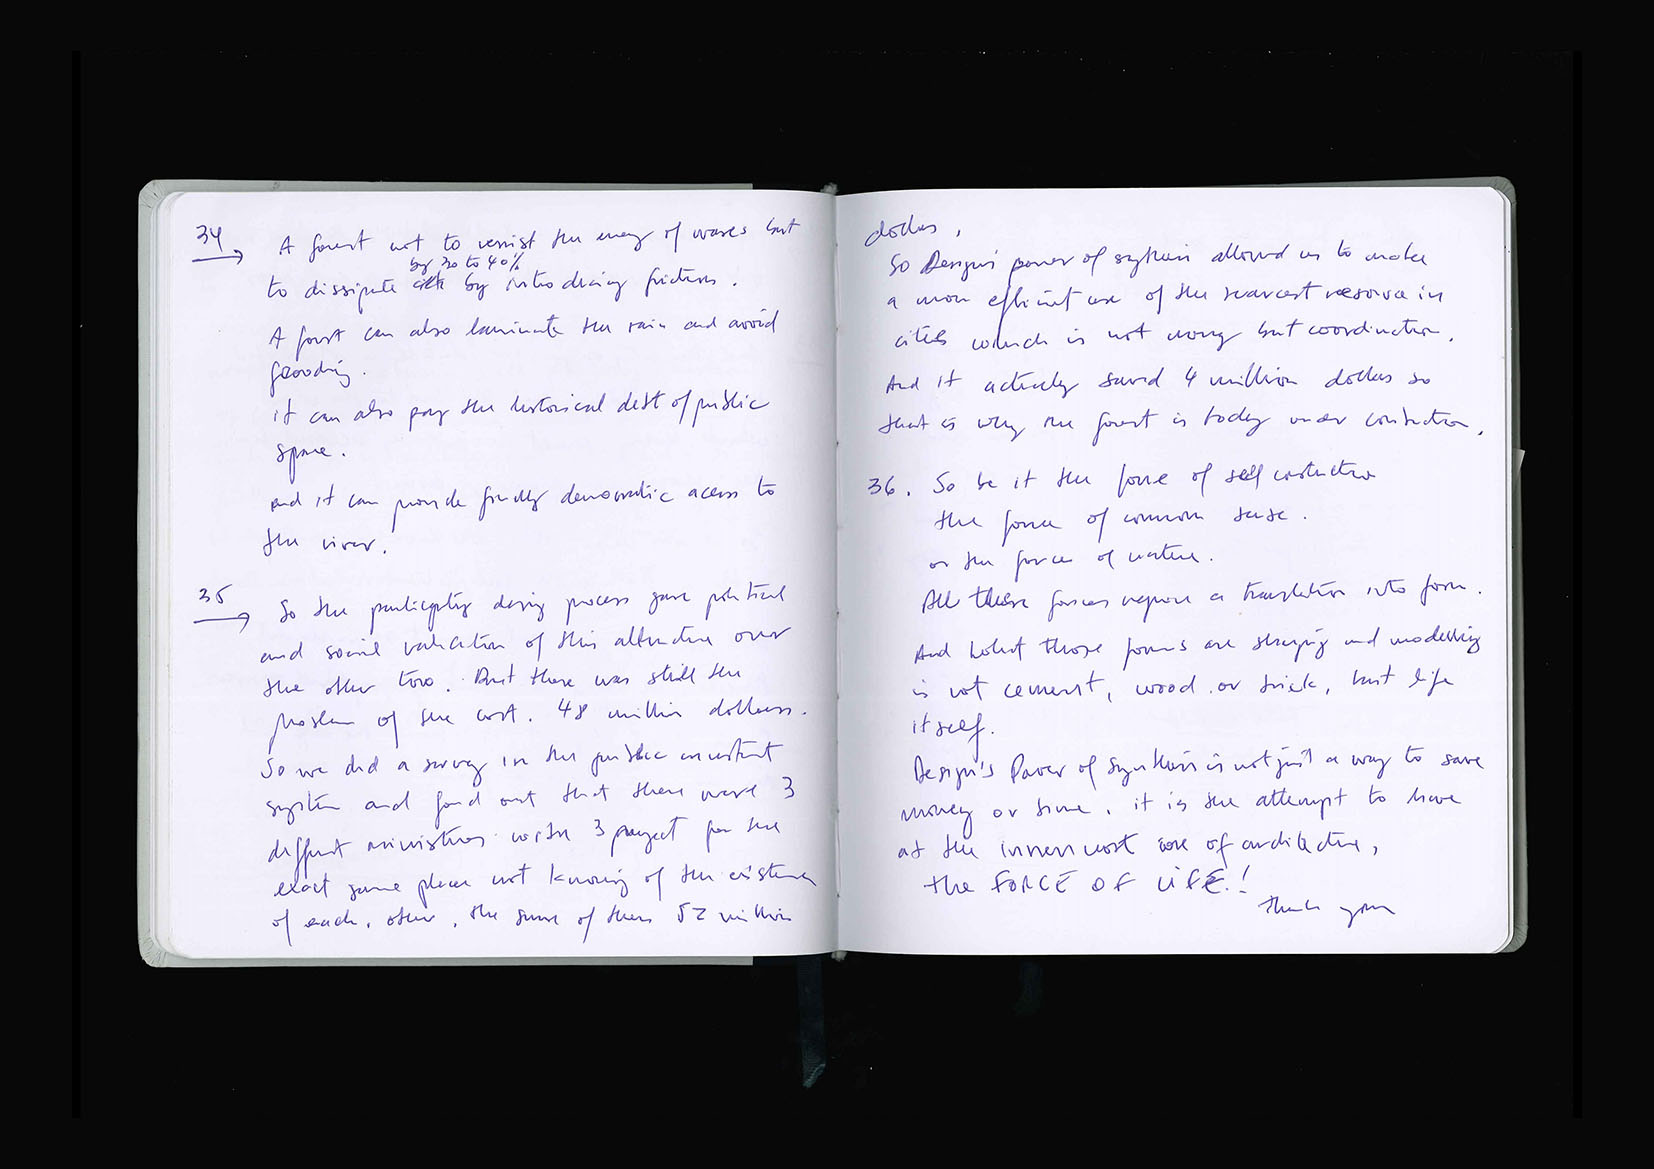 34
A forest not to resist the energy of waves but
by 30 to 40%
to dissipate it by introducing friction.
A forest can also laminate the rain and avoid
flooding.
it can also pay the historical debt of public
space.
and it can provide finally democratic access to
the river.
35
So the participatory design process gave political
and social validation of this alternative over
the other two. But there was still the
problem of the cost. 48 million dollars.
So we did a survey in the public investment
system and found out that there were 3
different ministries with 3 project for the
exact same place not knowing of the existence
of each other, the sum of them 52 million
dollars,
So Design's power of synthesis allowed us to make
a more efficient use of the scarcest resource in
cities which is not money but coordination.
And it actually saved 4 million dollars so
that is why the forest is today under construction.
36. So be it the force of self construction
the force of common sense.
or the force of nature.
All these forces require a translation into form.
And what those forms are shaping and modelling
is not cement, wood or brick, but life
itself.
Design's Power of Synthesis is not just a way to save
money or time, it is the attempt to have
at the innermost core of architecture,
the FORCE OF LIFE!
thank you